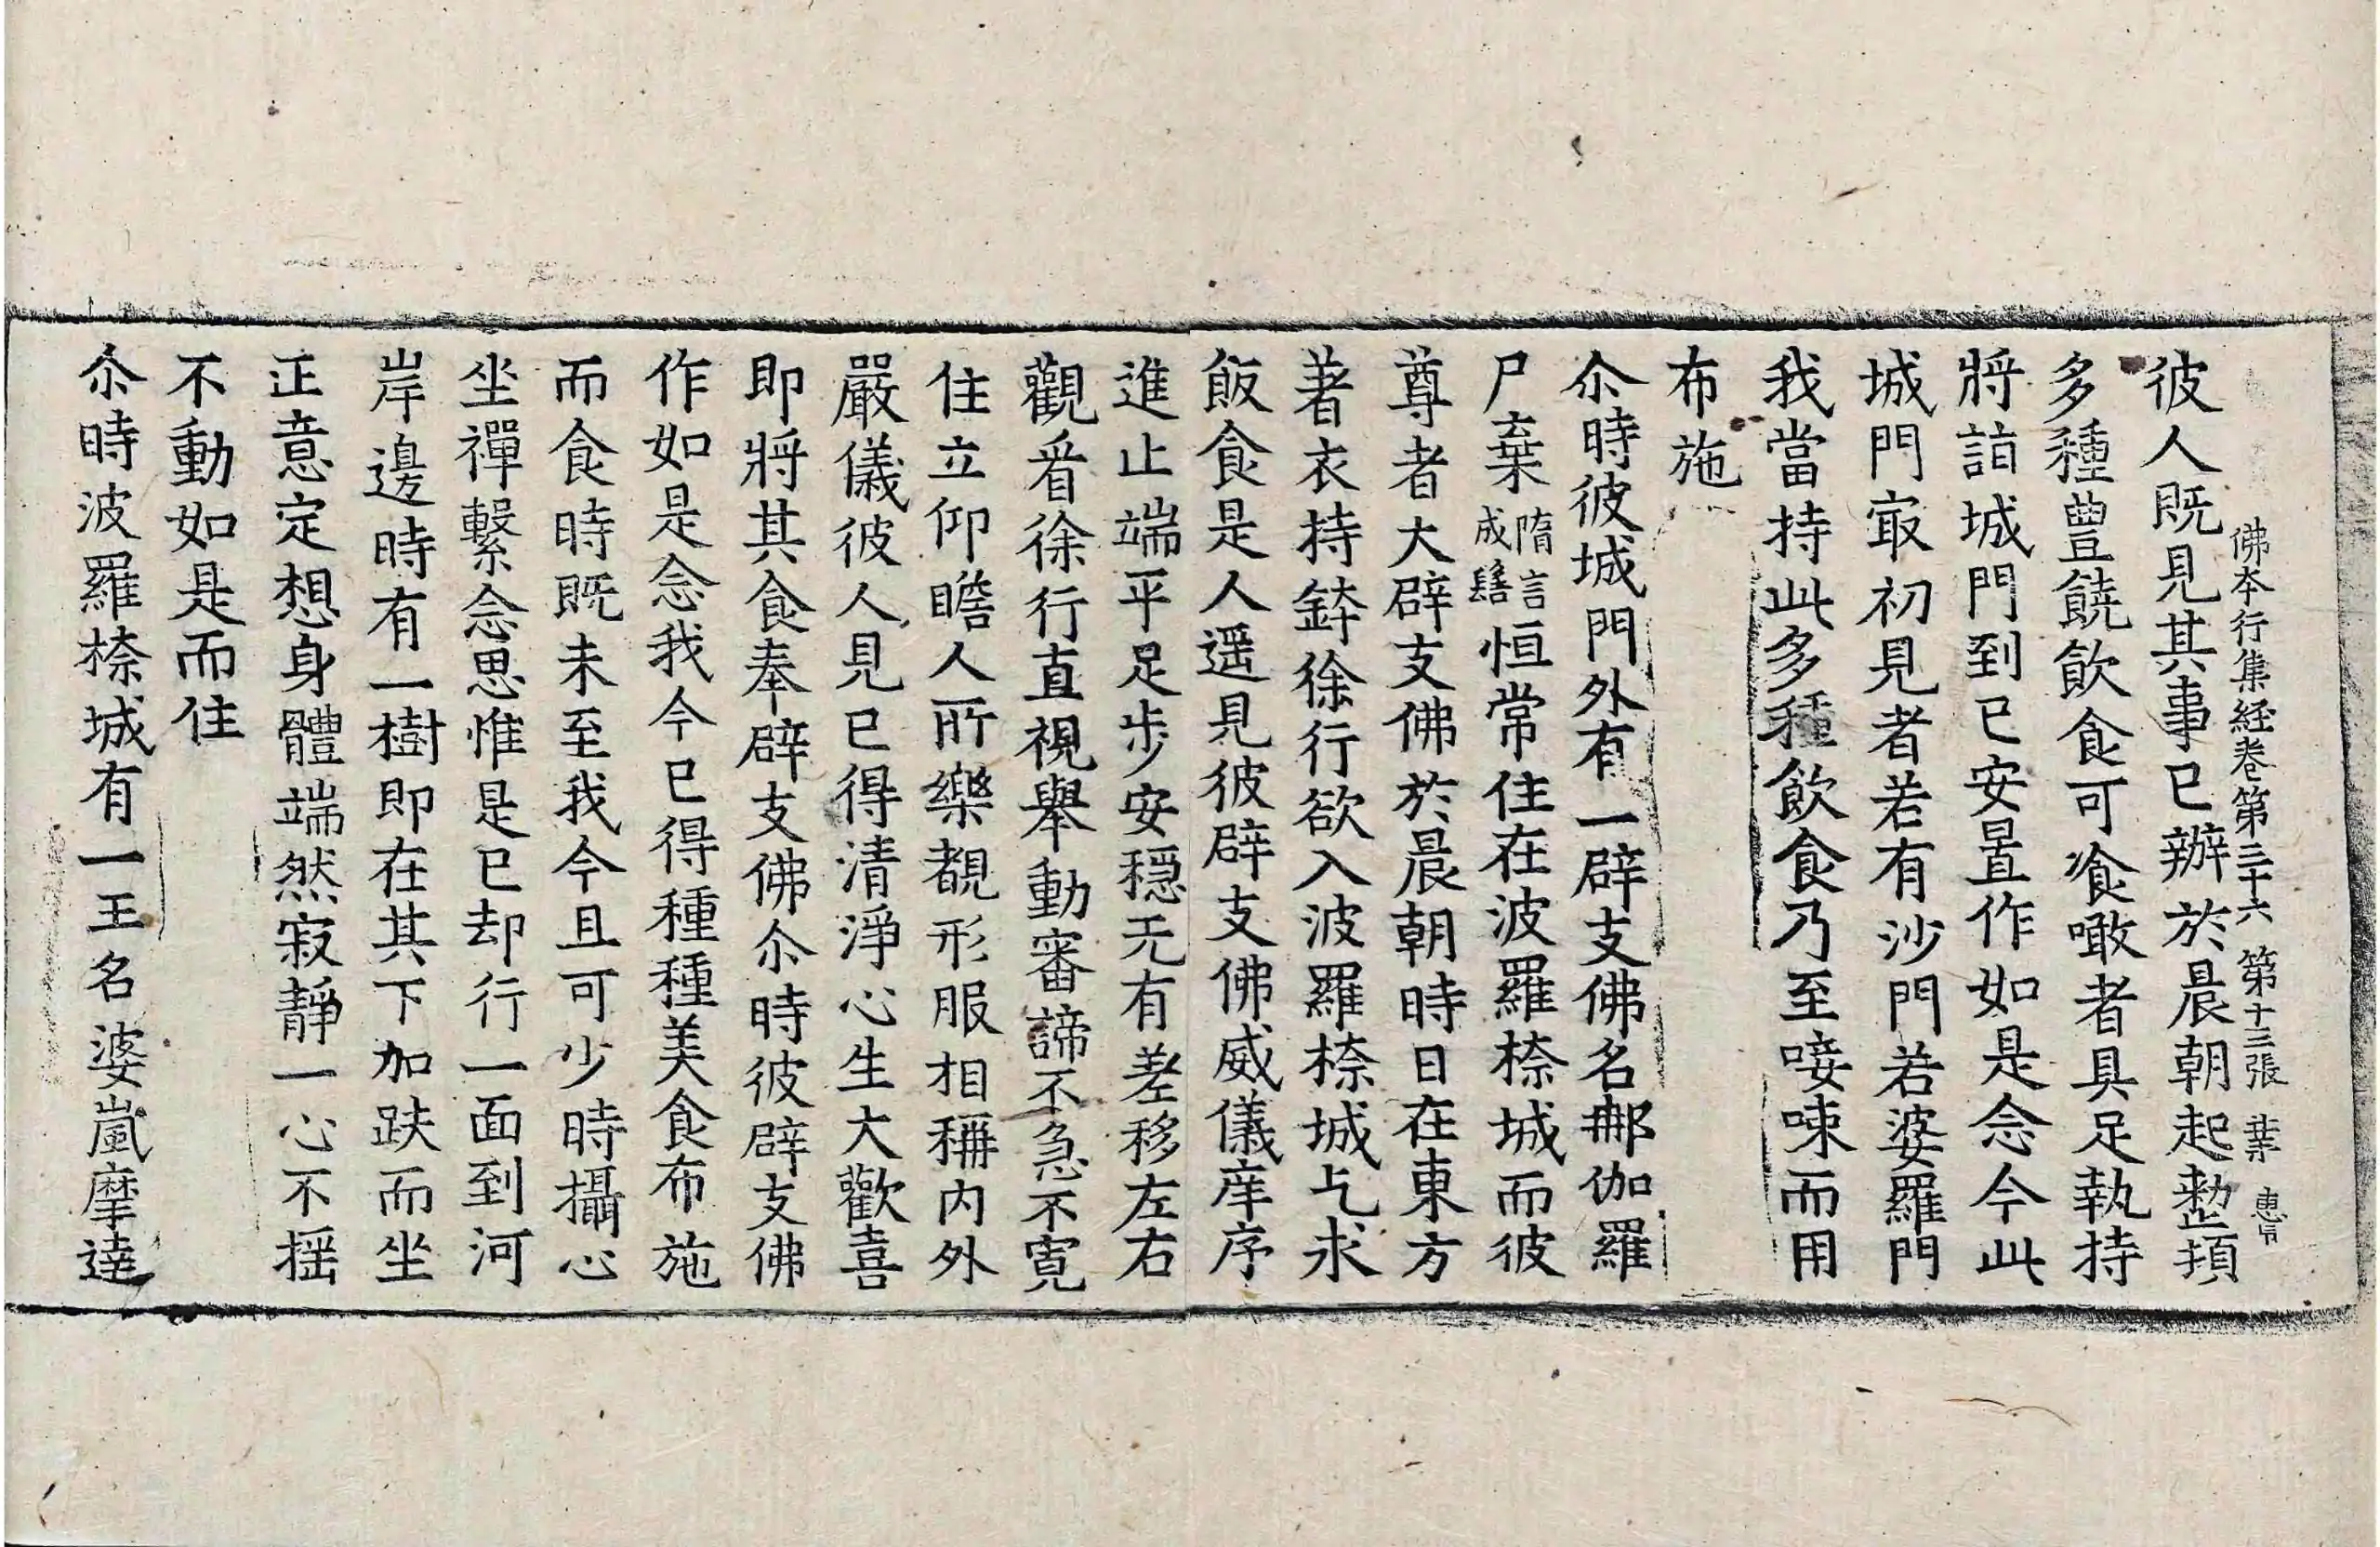 佛夲行集経卷第三十六 第十三張 惠
彼人既見其事已辦於晨朝起整頓
多種豊饒飲食可飡噉者具足執持
將詣城門到已安置作如是念今此
城門㝡初見者若有沙門若婆羅門
我當持此多種飲食乃至唼㖨而用
布施
尒時彼城門外有一辟支佛名𨚗伽羅
尸棄隋言成髻恒常住在波羅㮈城而彼
尊者大辟支佛於晨朝時日在東方
著衣持鉢徐行欲入波羅㮈城乞求
飯食是人遥見彼辟支佛威儀庠序
進止端平足步安穩无有差移左右
觀看徐行直視舉動審諦不急不寛
住立仰瞻人所樂覩形服相稱內外
嚴儀彼人見已得清淨心生大歡喜
即將其食奉辟支佛尒時彼辟支佛
作如是念我今已得種種美食布施
而食時既未至我今且可少時攝心
坐禪繫念思惟是已却行一面到河
岸邊時有一樹即在其下加趺而坐
正意定想身體端然寂靜一心不揺
不動如是而住
尒時波羅㮈城有一王名婆嵐摩達